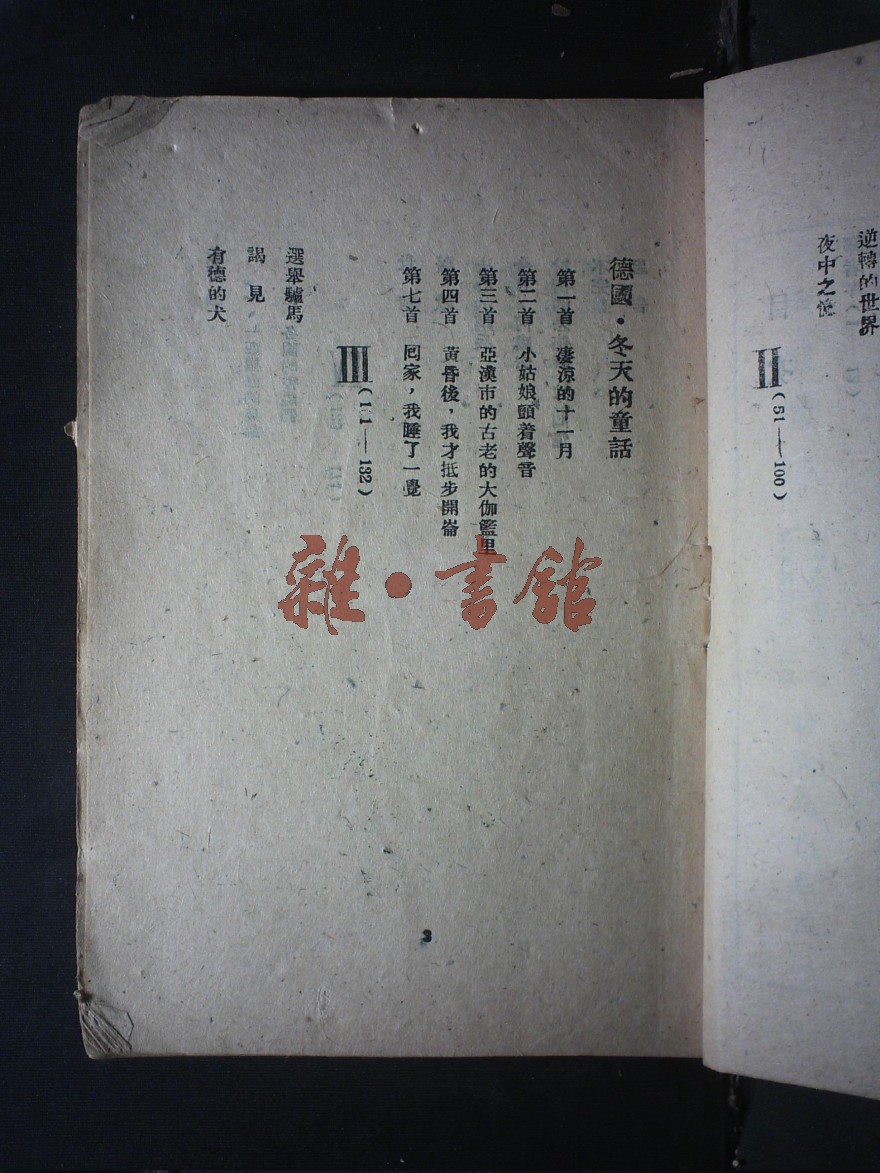 逆轉的世界
夜中之憶
II（51—100）
德國·冬天的童話
第一首　凄涼的十一月
第二首　小姑娘顫着聲音
第三首　亞漢市的古老的大伽籃里
第四首　黃昏後，我才抵步開崙
第七首　回家，我睡了一覺
III（101—132）
選舉驢馬
謁見
有德的犬
3
雜·書館